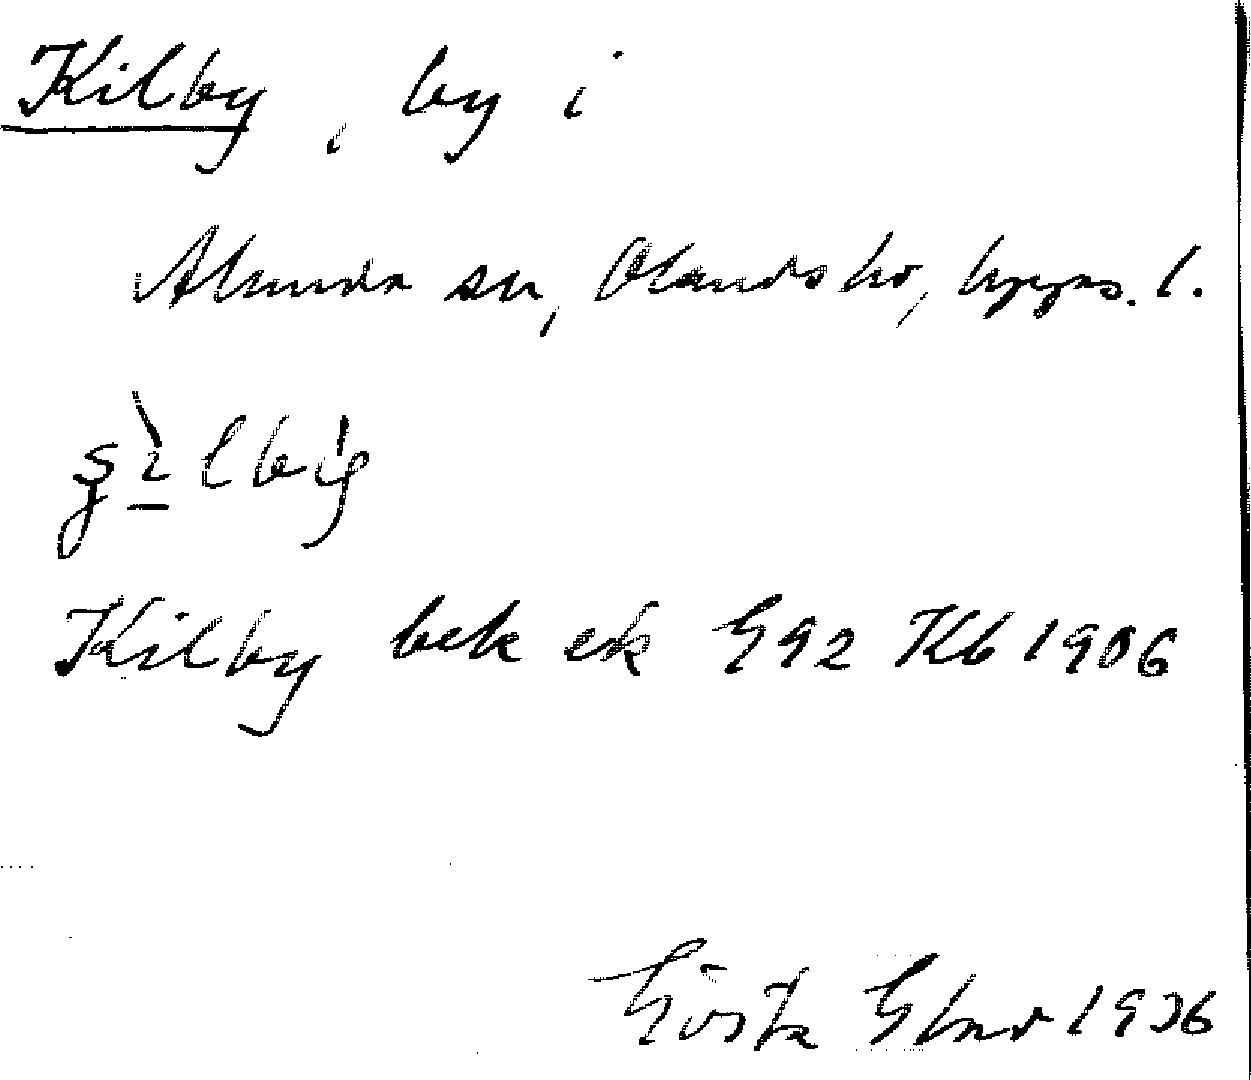 Kilby, by i
Alunda sn, Olands hd, Uppss. l.
Kilby bek ek G92 Kb 1906
Gösta 1936